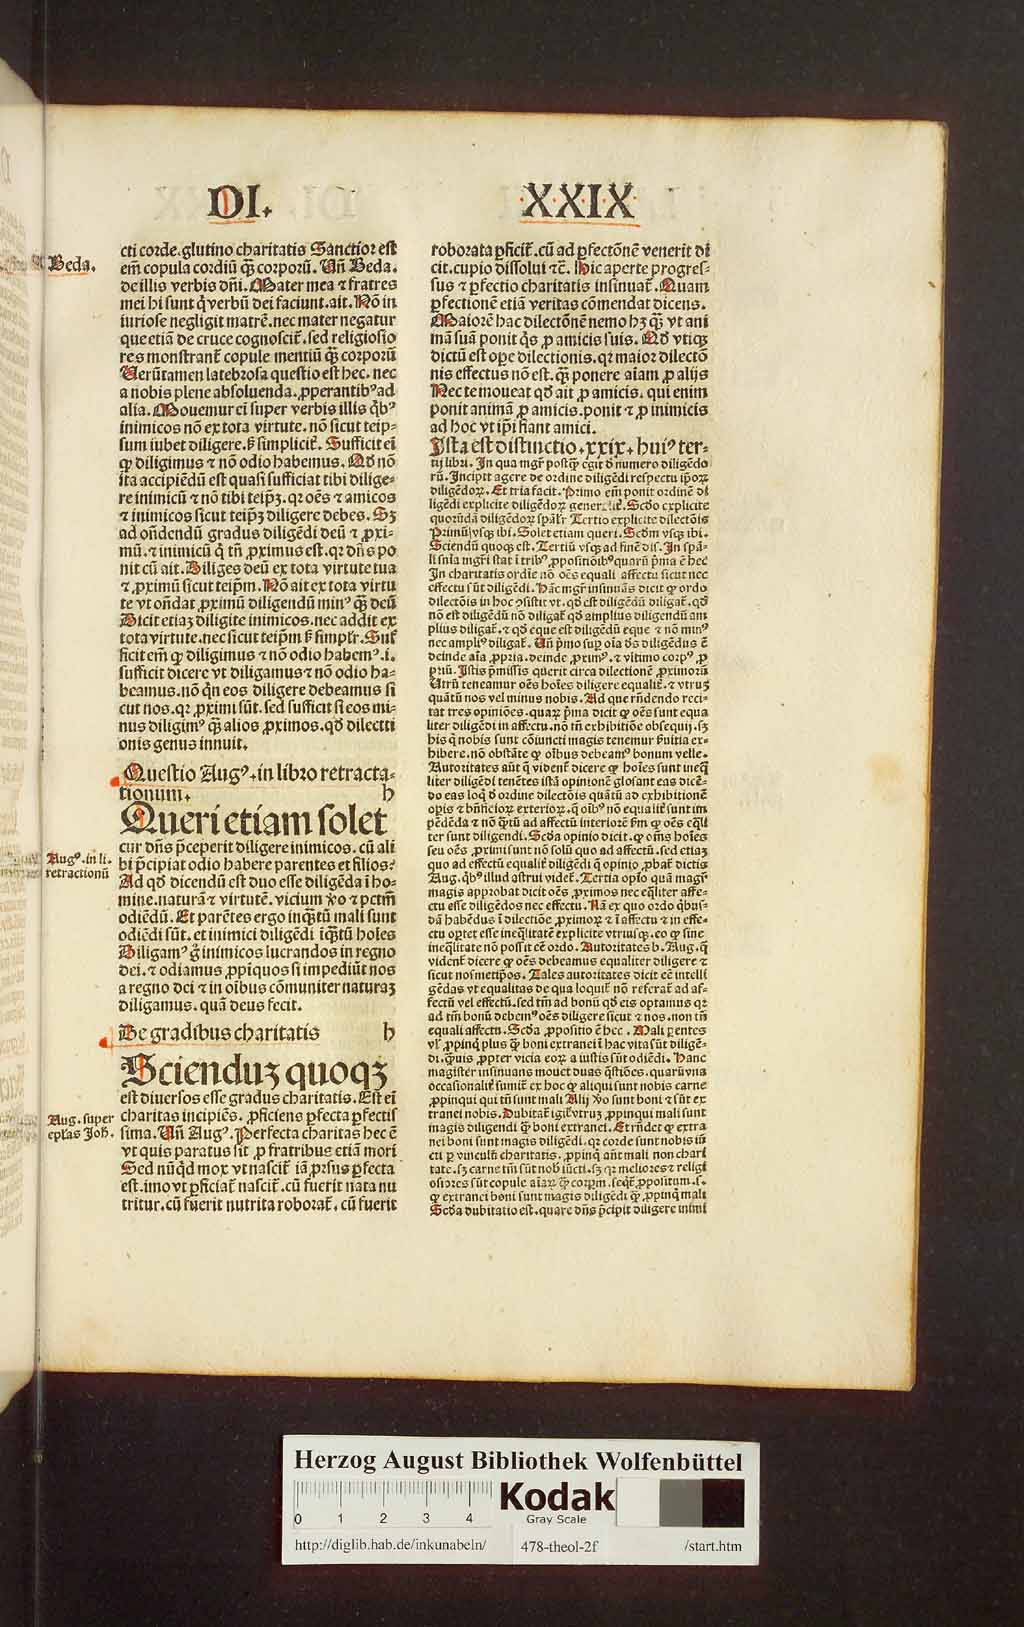 DI.
XXIX
Beda.
cti corde.glutino charitatis Sanctior est
em̄ copula cordiū q̄ꝫ corporū. Vn̄ Beda.
de illis verbis dn̄i. Mater mea ⁊ fratres
mei hi sunt q̇ verbū dei faciunt.ait. Nō in
iuriose negligit matrē.nec mater negatur
que etiā de cruce cognoscit᷑.sed religiosio
res monstrant᷑ copule mentiū q̄ꝫ corporū
Verūtamen latebrosa questio est hec. nec
a nobis plene absoluenda.ꝓperantibꝰ ad
alia. Mouemur em̄ super verbis illis q̇bꝰ
inimicos nō ex tota virtute.nō sicut teip-
sum iubet diligere.ſꝫ simplicit᷑. Sufficit em̄
ꝙ diligimus ⁊ nō odio habemus. Qd̛ nō
ita accipiēdū est quasi sufficiat tibi dilige-
re inimicū ⁊ nō tibi teipꝫ.qꝛ oēs ⁊ amicos
⁊ inimicos sicut teipꝫ diligere debes. Sꝫ
ad on̄dendū gradus diligēdi deū ⁊ ꝓxi-
mū.⁊ inimicū q̇ tn̄ ꝓximus est.qꝛ dn̄s po
nit cū ait. Diliges deū ex tota virtute tua
⁊ ꝓximū sicut teip̄m. Nō ait ex tota virtu
te vt on̄dat ꝓximū diligendū minꝰ q̄ꝫ deū
Dicit etiaꝫ diligite inimicos.nec addit ex
tota virtute.nec sicut teip̄m ſꝫ simplr̄. Suf
ficit em̄ ꝙ diligimus ⁊ nō odio habemꝰ.i.
sufficit dicere vt diligamus ⁊ nō odio ha-
beamus.nō q̇n eos diligere debeamus si
cut nos.qꝛ ꝓximi sūt.sed sufficit si eos mi-
nus diligimꝰ q̄ꝫ alios ꝓximos.qd̛ dilecti
onis genus innuit.
Questio Augꝰ.in libro retracta-
tionum. h
Queri etiam solet
Augꝰ.in li.
retractionū
cur dn̄s p̄ceperit diligere inimicos.cū ali
bi p̄cipiat odio habere parentes et filios?
Ad qd̛ dicendū est duo esse diligēda i ho-
mine.naturā ⁊ virtutē.vicium v̄o ⁊ pctm̄
odiēdū. Et parētes ergo inq̄tū mali sunt
odiēdi sūt.et inimici diligēdi iq̄tū hoīes
Diligamꝰ g̊ inimicos lucrandos in regno
dei.⁊ odiamus ꝓpīquos si impediūt nos
a regno dei ⁊ in oībus cōmuniter naturaꝫ
diligamus.quā deus fecit.
De gradibus charitatis h
Scienduꝫ quoqꝫ
Aug.super
epl̄as Joh̄.
est diuersos esse gradus charitatis. Est em̄
charitas incipiēs.ꝓficiens ꝑfecta ꝑfectis
sima. Vn̄ Augꝰ. Perfecta charitas hec ē
vt quis paratus sit ꝓ fratribus etiā mori
Sed nūqd̛ mox vt nascit᷑ iā ꝓrsus ꝑfecta
est.imo vt ꝑficiat᷑ nascit᷑.cū fuerit nata nu
tritur.cū fuerit nutrita roborat᷑.cū fuerit
roborata ꝑficit᷑.cū ad ꝑfectōnē venerit di
cit.cupio dissolui ⁊c̄. Hic aperte progres-
sus ⁊ ꝑfectio charitatis insinuat᷑. Quam
ꝑfectionē etiā veritas cōmendat dicens.
Maiorē hac dilectōnē nemo hꝫ q̄ꝫ vt ani
mā suā ponit q̇s ꝓ amicis suis. Qd̛ vtiqꝫ
dictū est oꝑe dilectionis.qꝛ maior dilectō
nis effectus nō est.q̄ꝫ ponere aīam ꝓ alijs
Nec te moueat qd̛ ait ꝓ amicis.qui enim
ponit animā ꝓ amicis.ponit ⁊ ꝓ inimicis
ad hoc vt ip̄i fiant amici.
Ista est distinctio.xxix.huiꝰ ter-
tij libri. In qua mgr̄ postq̄ꝫ egit d̛ numero diligēdo
rū. Incipit agere de ordine diligēdi respectu ip̄oꝝ
diligēdoꝝ. Et tria facit. Primo em̄ ponit ordinē di
ligēdi explicite diligēdoꝝ generalit᷑. Scd̄o explicite
quorūdā diligēdoꝝ spāl'r Tertio explicite dilectōis
Primū vsqꝫ ibi. Solet etiam queri. Scdm̄ vsqꝫ ibi.
Sciendū quoqꝫ est. Tertiū vsqꝫ ad finē dis. In spā-
li snīa mgr̄i stat i tribꝰ ꝓpositiōibꝰ quarū p̄ma ē hec
In charitatis ordīe nō oēs equali affectu sicut nec
effectu sūt diligēdi. Hāc mgr̄ insinuās dicit ꝙ ordo
dilectōis in hoc ɔsistit vt.qd̛ est diligēdū diligat᷑.qd̛
nō est diligēdū nō diligat᷑ qd̛ amplius diligendū am
plius diligat᷑.⁊ qd̛ eque est diligēdū eque ⁊ nō minꝰ
nec ampliꝰ diligat᷑. Vn̄ p̄mo suꝑ oīa dꝰs diligēdus ē
deinde aīa ꝓpria.deinde ꝓximꝰ.⁊ vltimo corpꝰ ꝓ
priū. Istis p̄missis querit circa dilectionē ꝓximorū
Vtrū teneamur oēs hoīes diligere equalit᷑.⁊ vtruꝫ
quātū nos vel minus nobis. Ad que rn̄dendo reci
tat tres opiniōes.quaꝝ p̄ma dicit ꝙ oēs sunt equa
liter diligēdi in affectu.nō tn̄ exhibitiōe obsequij.sꝫ
his q̇ nobis sunt cōiuncti magis tenemur bn̄ficia ex-
hibere.nō obstāte ꝙ oībus debeamꝰ bonum velle.
Autoritates aūt q̄ vident᷑ dicere ꝙ hoīes sunt ineq̄
liter diligēdi tenētes istā opinionē glosant eas dicē-
do eas loq̇ d̛ ordine dilectōis quātū ad exhibitionē
oꝑis ⁊ bn̄ficioꝝ exterioꝝ.q̄ oībꝰ nō equalit᷑ sunt im
pēdēda ⁊ nō q̄tū ad affectū interiorē ſm̄ quē oēs eq̄li
ter sunt diligendi. Scd̄a opinio dicit.ꝙ om̄s hoīes
seu oēs ꝓximi sunt nō solū quo ad affectū.sed etiaꝫ
quo ad effectū equalit᷑ diligēdi q̄ opinio ꝓbat᷑ dictis
Aug.q̇bꝰ illud astrui videt᷑. Tertia opīo quā magr̄
magis approbat dicit oēs ꝓximos nec eq̄liter affe-
ctu esse diligēdos nec effectu. Nā ex quo ordo q̇bus-
dā habēdus i dilectiōe ꝓximoꝝ ⁊ i affectu ⁊ in effe-
ctu oꝑtet esse ineq̄litatē explicite vtriusqꝫ.eo ꝙ sine
ineq̄litate nō possit eē ordo. Autoritates b.Aug.q̄
vident᷑ dicere ꝙ oēs debeamus equaliter diligere ⁊
sicut nosmetip̄os. Tales autoritates dicit eē intelli
gēdas vt equalitas de qua loquit᷑ nō referat᷑ ad af-
fectū vel effectū.sed tm̄ ad bonū qd̛ eis optamus qꝛ
ad tm̄ bonū debemꝰ oēs diligere sicut ⁊ nos.non tn̄
equali affectu. Scd̄a ꝓpositio ē hec. Mali ꝑentes
vl' ꝓpinq̇ plus q̄ꝫ boni extranei i hac vita sūt diligē-
di.q̄uis ꝓpter vicia eoꝝ a iustis sūt odiēdi. Hanc
magister insinuans mouet duas q̄stiōes.quarū vna
occasionalit᷑ sumit᷑ ex hoc ꝙ aliqui sunt nobis carne
ꝓpinqui qui tn̄ sunt mali Alij v̄o sunt boni ⁊ sūt ex
tranei nobis. Dubitat᷑ igit᷑ vtruꝫ ꝓpinqui mali sunt
magis diligendi q̄ꝫ boni extranei. Et rn̄det ꝙ extra
nei boni sunt magis diligēdi.qꝛ corde sunt nobis iū
cti ꝑ vinculū charitatis.ꝓpinq̇ aūt mali non chari
tate.sꝫ carne tm̄ sūt nob̄ iūcti.sꝫ qꝛ meliores ⁊ religi
osiores sūt copule aīaꝝ q̄ꝫ corpꝝ.seq̄t᷑ ꝓpositum.s.
ꝙ extranei boni sunt magis diligēdi q̄ꝫ ꝓpinq̇ mali
Scd̄a dubitatio est.quare dn̄s p̄cipit diligere inimi
Herzog August Bibliothek Wolfenbüttel
0 1 2 3 4
Kodak
Gray Scale
http://diglib.hab.de/inkunabeln/ 478-theol-2f /start.htm